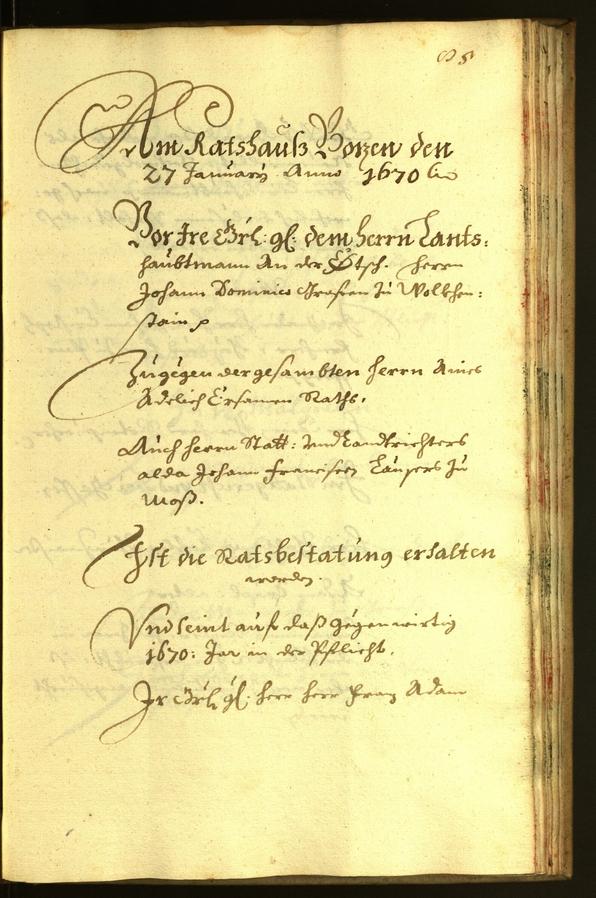 Am Ratshauß Bozen den
27 January Anno 1670
Vor Ire Gräfl: gl: dem Herrn Lants:
haubtmann An der Etsch. Herrn
Johann Dominico Grafen zu Wolkhen:
stain
Zugegen der gesambten Herrn Aines
Adelich Ersamen Raths.
Auch Herrn Statt: und Landtrichters
alda Johann Francißen zu
Moß.
Ist die Ratsbestatung erhalten
worden.
Und seint auf daß gegenwirtig
1670: Jar in der Pflicht.
Ir Gräfl: gl: Herr Herr Franz Adam